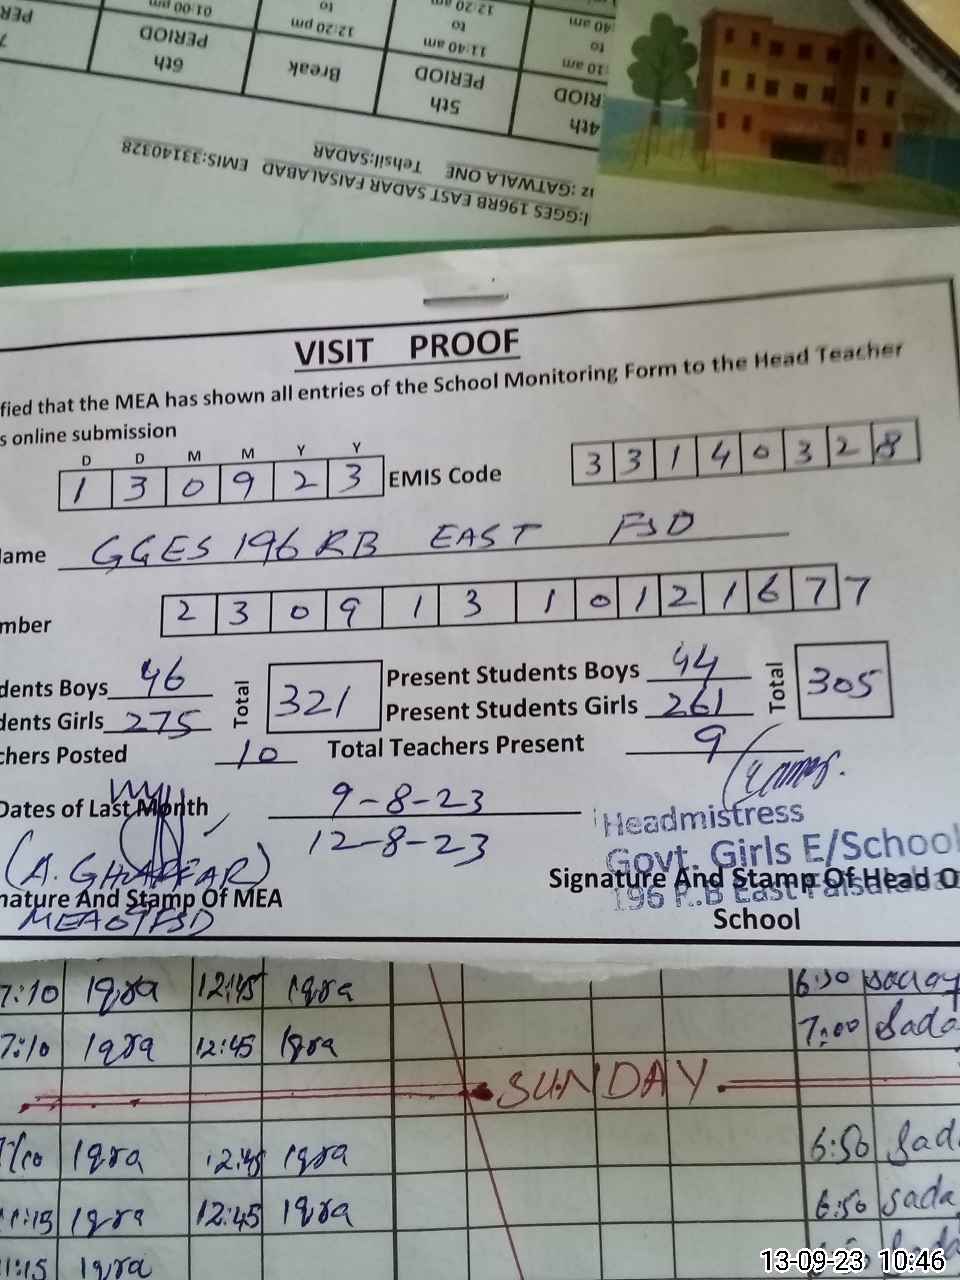 PERIOD
6th
01:00 pm
to
Break
12:20 pm
to
PERIOD
5th
11:40 am
to
12:20
RIOD
4th
:10 am
to
40 am
I:GGES 196RB EAST SADAR FAISALABAD EMIS:33140328
iz :GATWALA ONE Tehsil:SADAR
VISIT PROOF
fied that the MEA has shown all entries of the School Monitoring Form to the Head Teacher
s online submission
D D M M Y Y
1 3 0 9 2 3 EMIS Code 3 3 1 4 0 3 2 8
lame GGES 196 RB EAST FSD
mber 2 3 0 9 1 3 1 0 1 2 1 6 7 7
dents Boys 46 Total 321 Present Students Boys 44 Total 305
dents Girls 275 Present Students Girls 261
chers Posted 10 Total Teachers Present 9
Dates of Last Month 9-8-23
12-8-23
(A. GHAFFAR)
Headmistress
Govt. Girls E/School
196 R.B East Faisalaba
nature And Stamp Of MEA Signature And Stamp Of Head O
MEA 07 FSD School
7:10 Iqra 12:45 Iqra 6:50
7:10 Iqra 12:45 Iqra 7:00 Sada
SUNDAY
Iqra 12:45 Iqra 6:50 Sad
11:15 Iqra 12:45 Iqra 6:50 Sada
11:15 Iqra
13-09-23 10:46